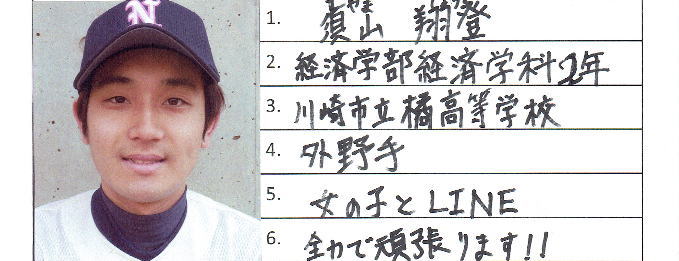 N
1. 須山 翔登
2. 経済学部経済学科2年
3. 川崎市立橘高等学校
4. 外野手
5. 女の子とLINE
6. 全力で頑張ります!!